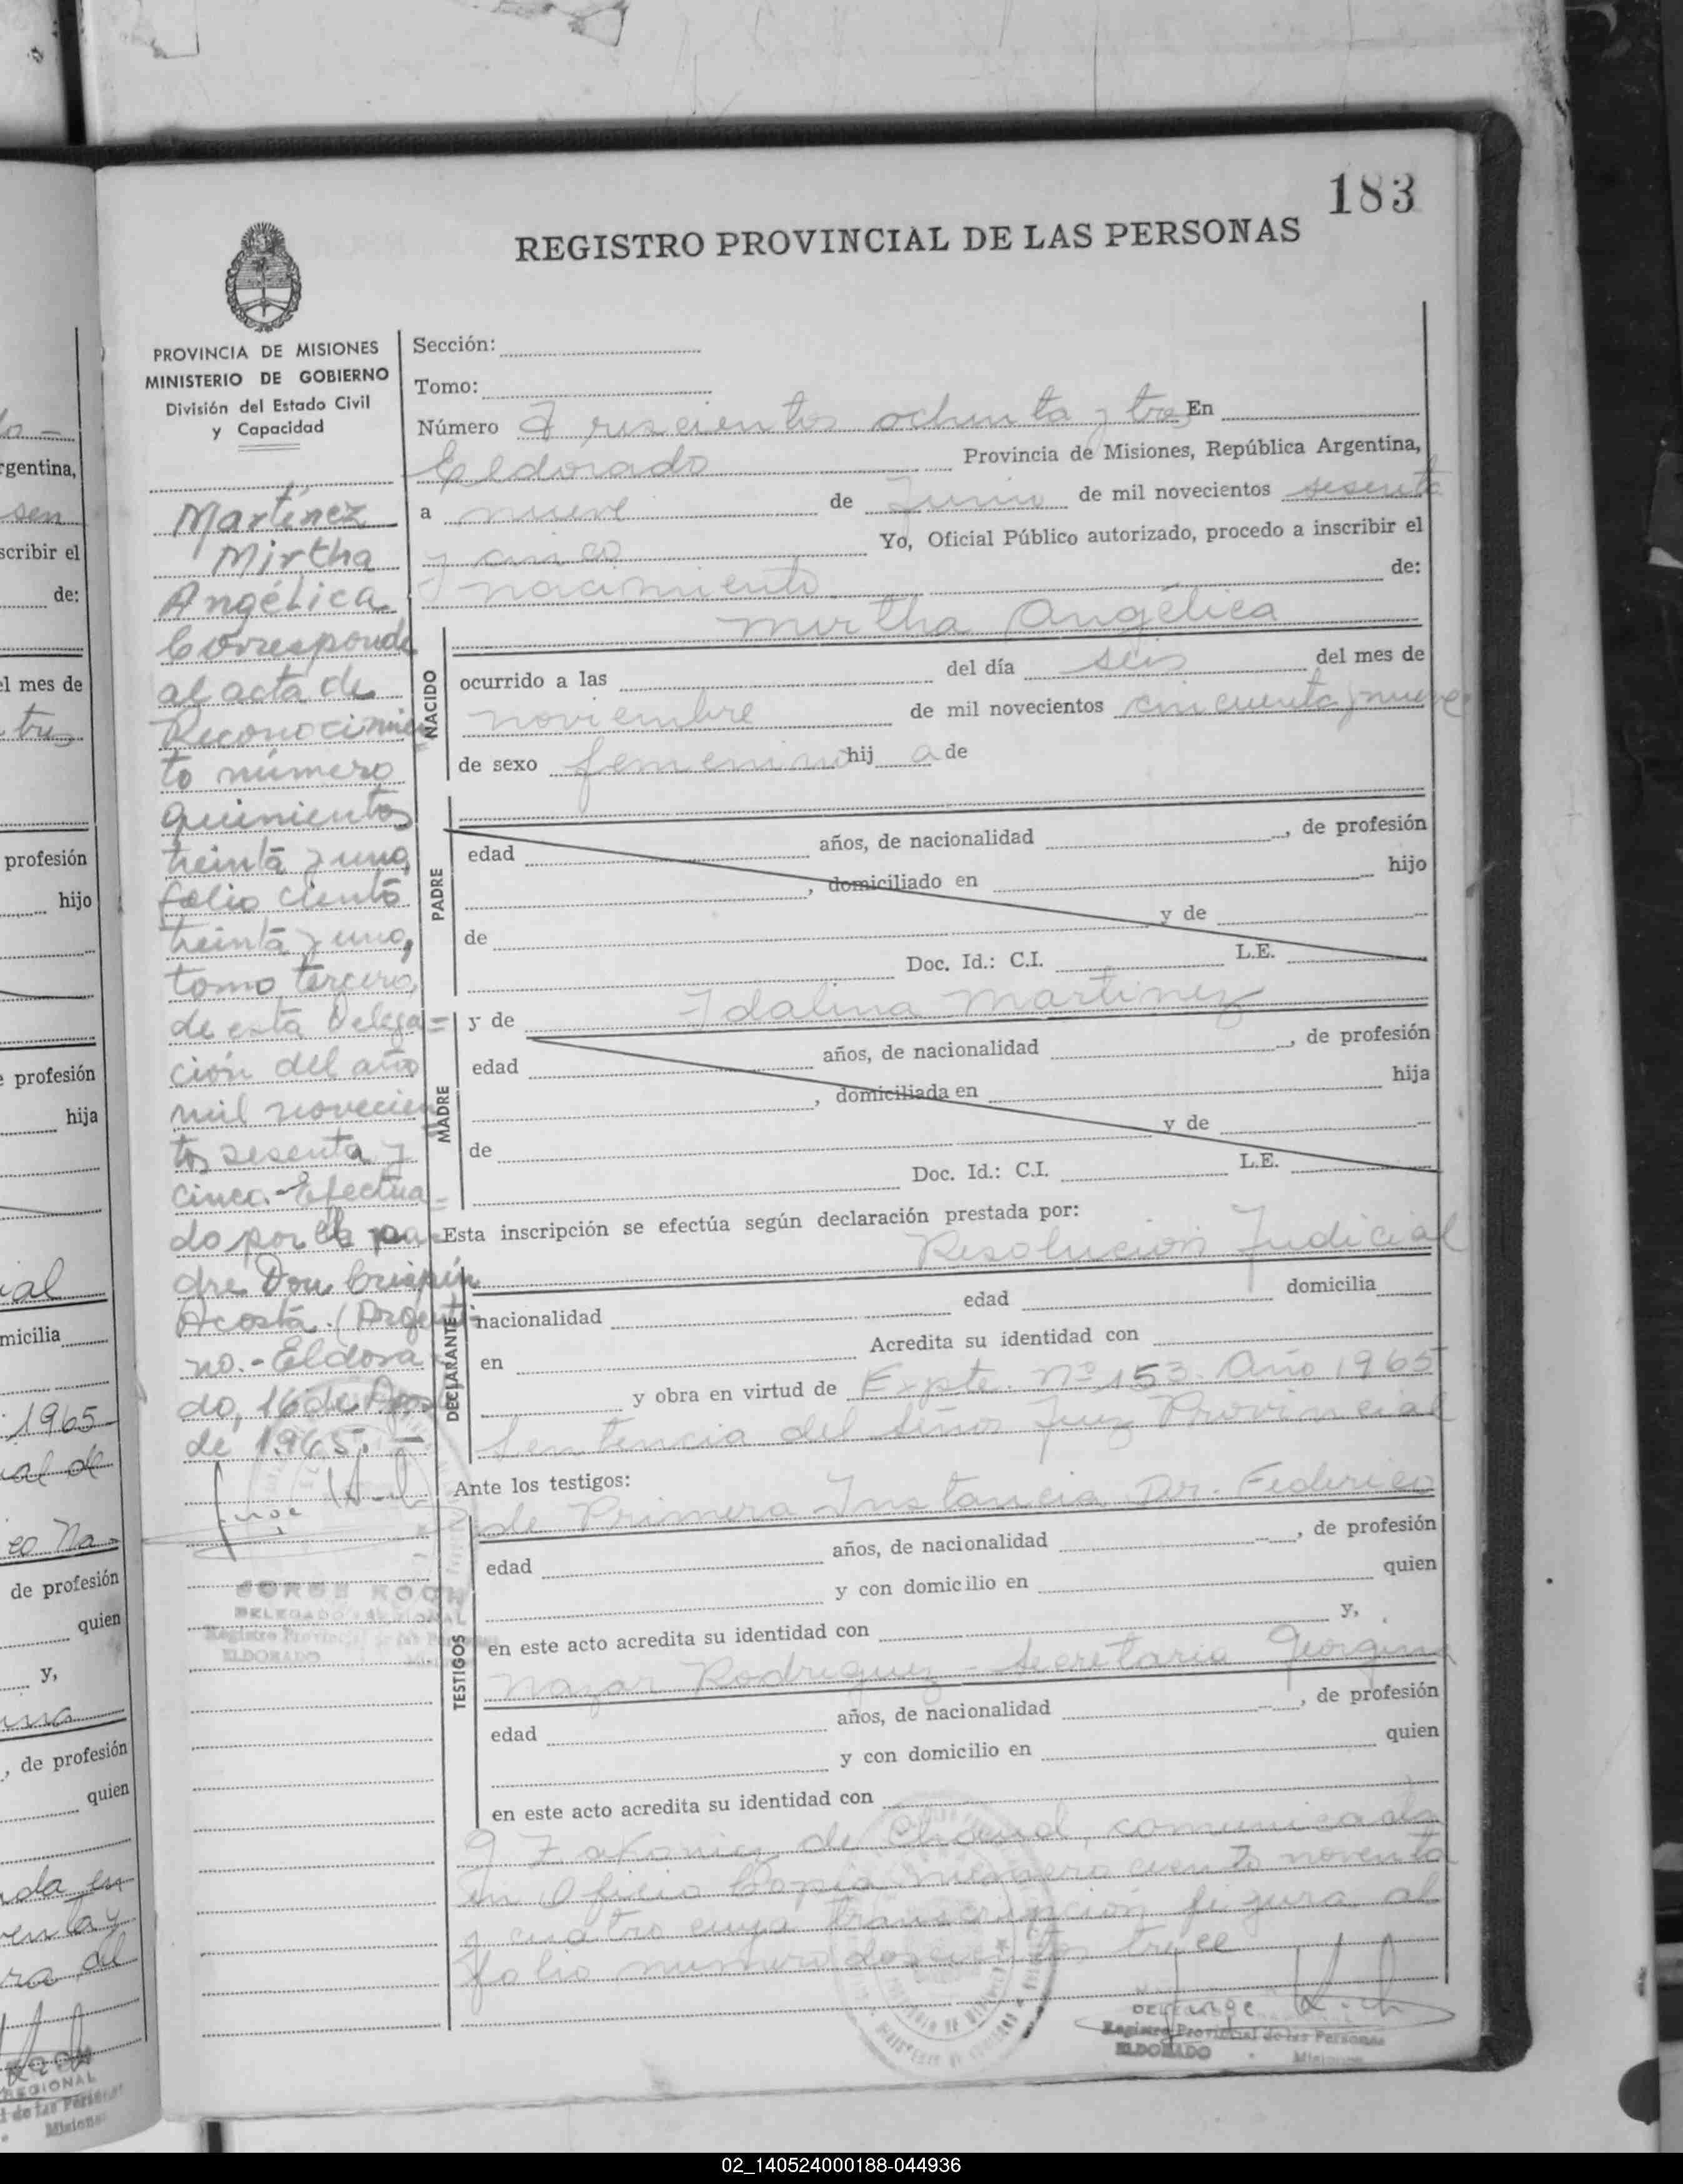 183
REGISTRO PROVINCIAL DE LAS PERSONAS
PROVINCIA DE MISIONES
MINISTERIO DE GOBIERNO
División del Estado Civil
y Capacidad
Martínez
Mirtha
Angélica
Corresponde
al acta de
Reconocimien
to número
quinientos
treinta y uno,
folio ciento
treinta y uno,
tomo tercero,
de esta Delega=
ción del año
mil novecien
tos sesenta y
cinco.-Efectua=
do por el pa=
dre Don Crispín
Acosta. (Argenti
no.-Eldora
do, 16 de Agos
de 1965.-
DELEGADO REGIONAL
Registro Provincial de las Personas
ELDORADO
Sección:
Tomo:
Número Trescientos ochenta y tres En
Eldorado Provincia de Misiones, República Argentina,
a nueve de Junio de mil novecientos sesenta
y cinco Yo, Oficial Público autorizado, procedo a inscribir el
nacimiento de:
NACIDO
Mirtha Angélica
ocurrido a las del día seis del mes de
noviembre de mil novecientos cincuenta y nueve
de sexo femenino hij a de
PADRE
edad años, de nacionalidad , de profesión
, domiciliado en hijo
de y de
Doc. Id.: C.I. L.E.
MADRE
y de Idalina Martinez
edad años, de nacionalidad , de profesión
, domiciliada en hija
de y de
Doc. Id.: C.I. L.E.
Esta inscripción se efectúa según declaración prestada por:
DECLARANTE
Resolución Judicial
nacionalidad edad domicilia
en Acredita su identidad con
y obra en virtud de Expte. Nº 153. Año 1965
Sentencia del Señor Juez Provincial
Ante los testigos:
TESTIGOS
de Primera Instancia Dr. Federico
edad años, de nacionalidad , de profesión
y con domicilio en quien
en este acto acredita su identidad con y,
Nazar Rodriguez - Secretaria Georgina
edad años, de nacionalidad , de profesión
y con domicilio en quien
en este acto acredita su identidad con
de comunicada
en Oficio Copia número ciento noventa
y cuatro cuya transcripción figura al
folio numero doscientos trece
Registro Provincial de las Personas
ELDORADO Misiones
02_140524000188-044936